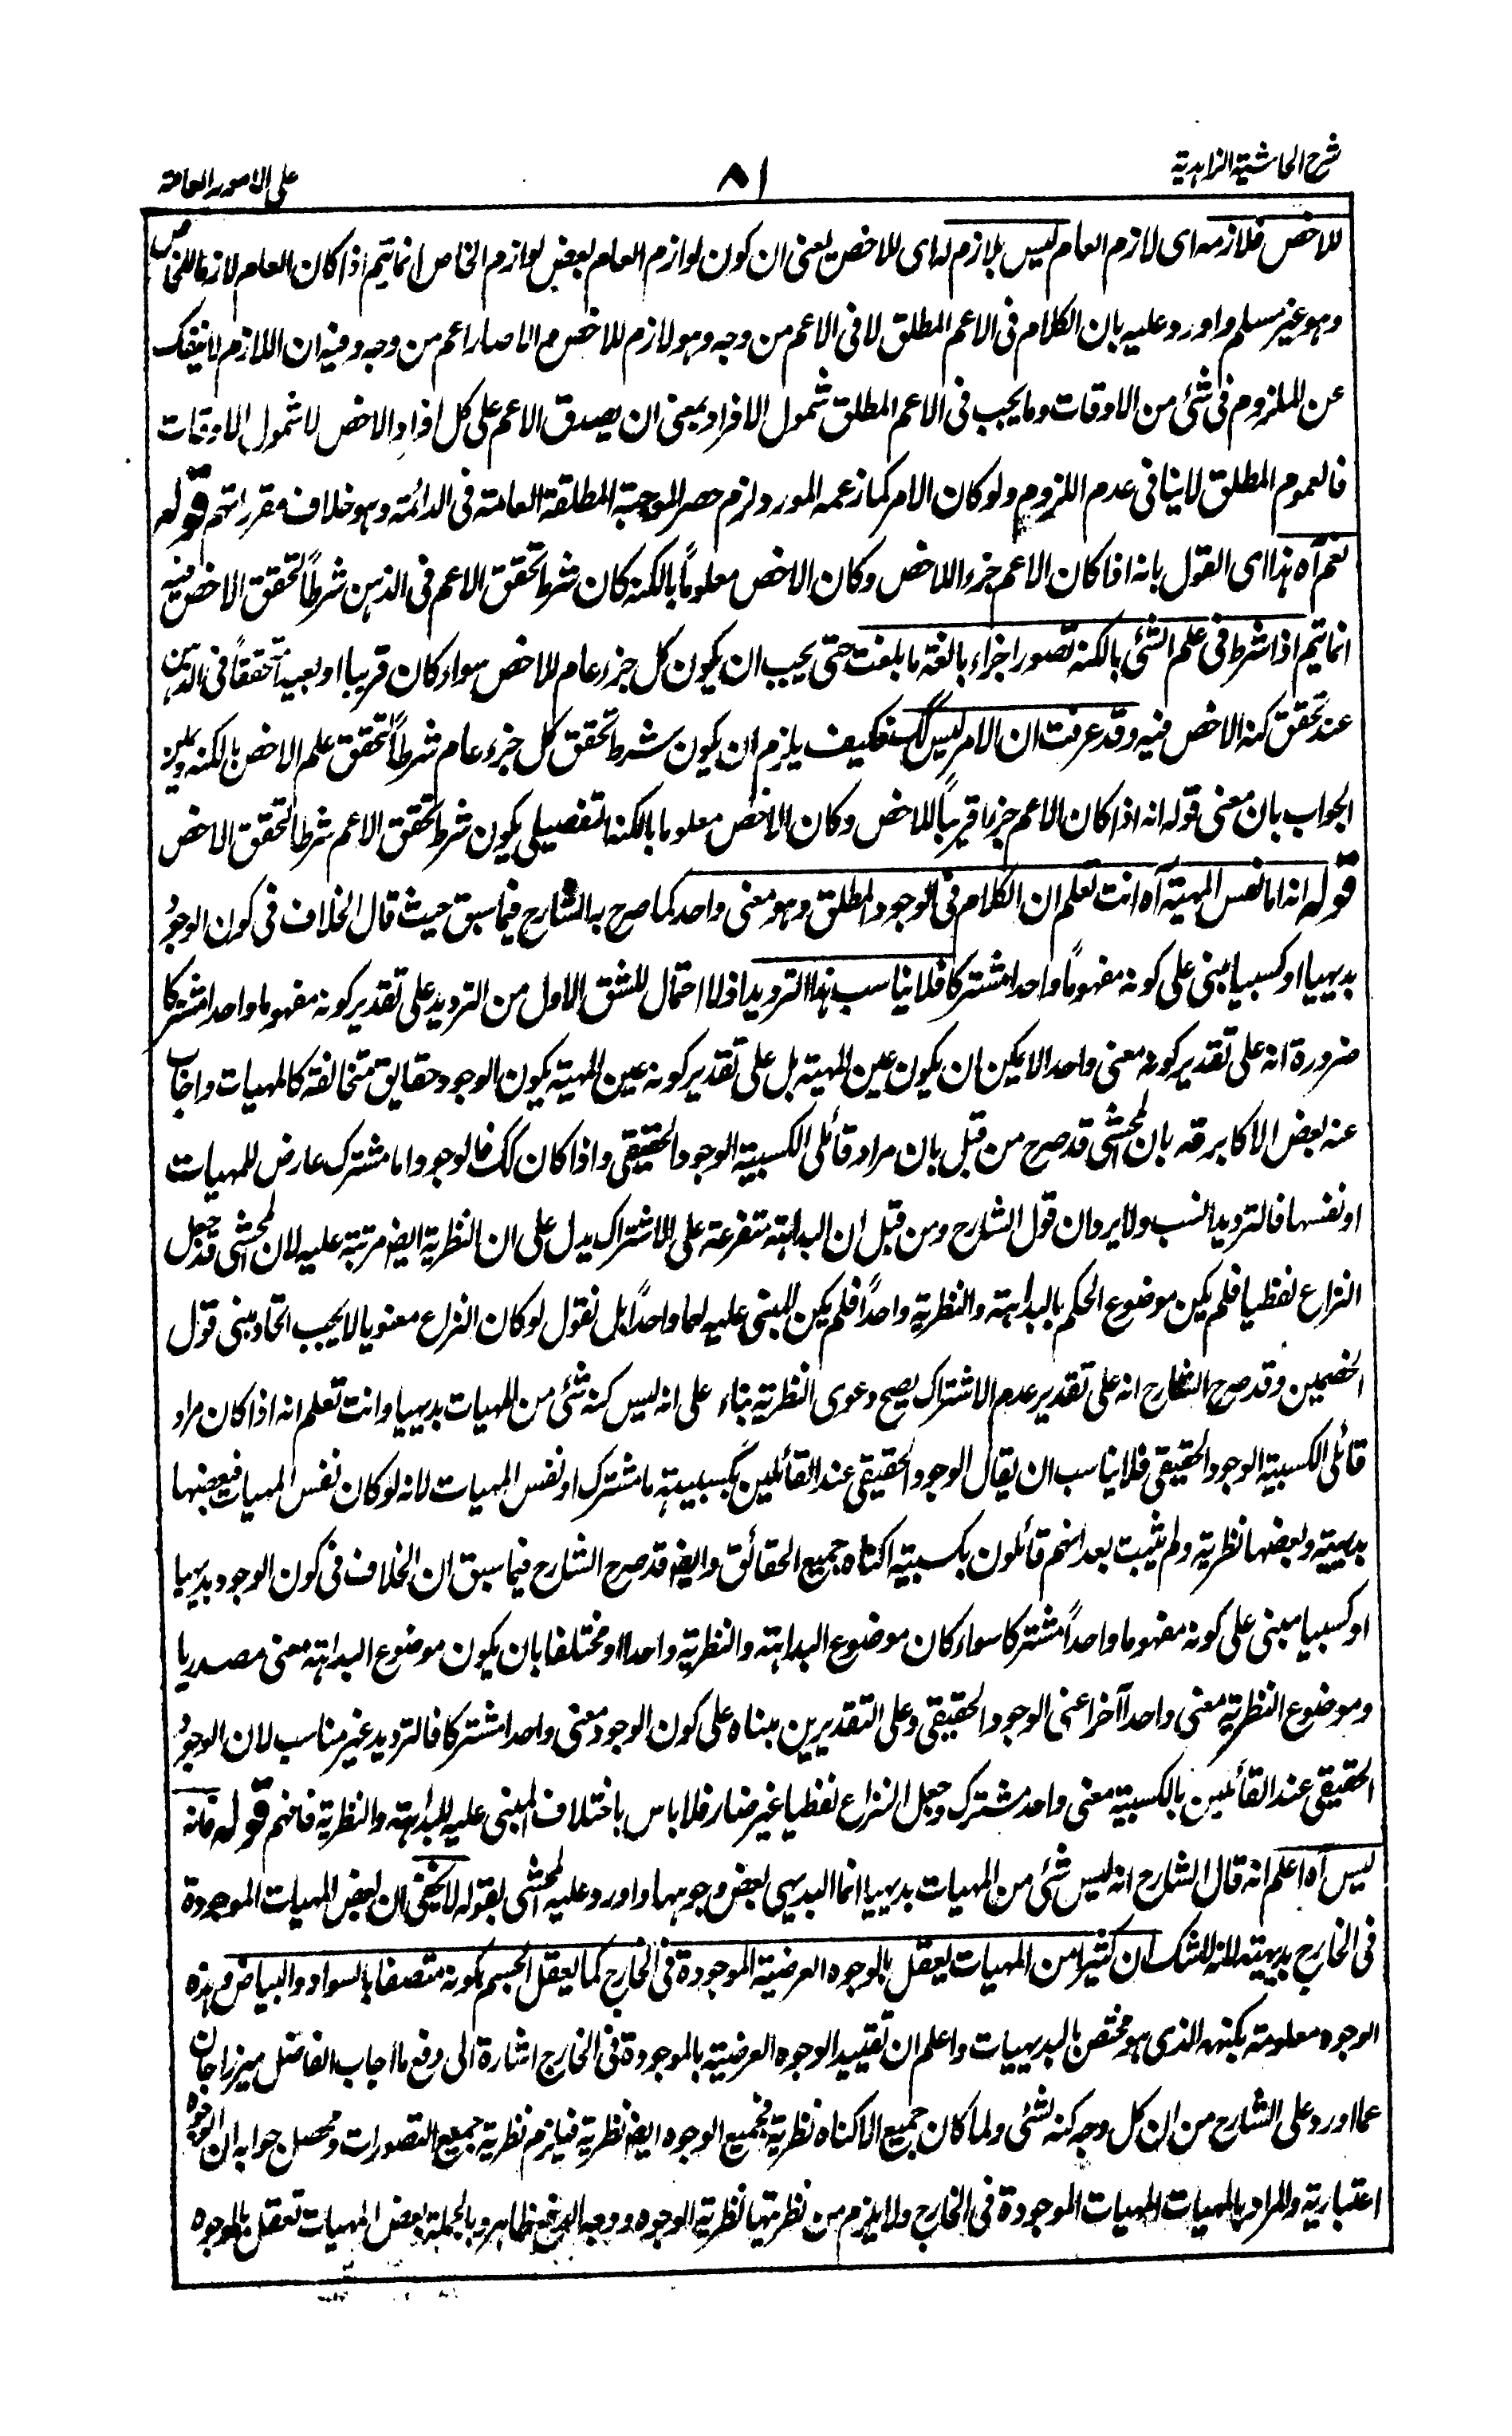 شرح الحاشية الزاهدية
٨١
على الامور العامة
للاخص فلازمه اى لازم العام ليس بلازم له اى للاخص يعنى ان كون لوازم العام بعض لوازم الخاص انما يتم اذا كان العام لازما للخاص
وهو غير مسلم واورد عليه بان الكلام فى الاعم المطلق لا فى الاعم من وجه وهو لازم للاخص والا صار اعم من وجه وفيه ان اللازم لا ينفك
عن الملزوم فى شئ من الاوقات وما يجب فى الاعم المطلق شمول الافراد بمعنى ان يصدق الاعم على كل افراد الاخص لا شمول الاوقات
فالعموم المطلق لا ينافى عدم اللزوم ولو كان الامر كما زعمه المورد لزم حصر الموجبة المطلقة العامة فى الدائمة وهو خلاف مقرراتهم قوله
نعم آه هذا اى القول بانه اذا كان الاعم جزء اللاخص وكان الاخص معلوماً بالكنه كان شرط تحقق الاعم فى الذهن شرطاً لتحقق الاخص فيه
انما يتم اذا شرط فى علم الشئ بالكنه تصور اجزاء بالغة ما بلغت حتى يجب ان يكون كل جزء عام للاخص سواء كان قريبا او بعيداً متحققاً فى الذهن
عند تحقق كنه الاخص فيه وقد عرفت ان الامر ليس كك فكيف يلزم ان يكون شرط تحقق كل جزء عام شرطاً لتحقق علم الاخص بالكنه ويمكن
الجواب بان معنى قوله انه اذا كان الاعم جزءا قريباً للاخص وكان الاخص معلوما بالكنه التفصيلى يكون شرط تحقق الاعم شرطا لتحقق الاخص
قوله انه اما نفس المهية آه انت تعلم ان الكلام فى الوجود المطلق وهو معنى واحد كما صرح به الشارح فيما سبق حيث قال الخلاف فى كون الوجود
بديهيا او كسبيا مبنى على كونه مفهوماً واحدا مشتركا فلا يناسب هذا الترديد اذ لا احتمال للشق الاول من الترديد على تقدير كونه مفهوما واحدا مشتركا
ضرورة انه على تقدير كونه معنى واحدا لا يمكن ان يكون عين المهية بل على تقدير كونه عين المهية يكون الوجود حقايق متخالفة كالمهيات واجاب
عنه بعض الاكابر قه بان المحشى قد صرح من قبل بان مراد قائلى الكسبية الوجود الحقيقى واذا كان كك فالوجود اما مشترك عارض للمهيات
او نفسها فالترديد انسب ولا يرد ان قول الشارح ومن قبل ان البداهة متفرعة على الاشتراك يدل على ان النظرية ايضا مرتبة عليه لان المحشى قد جعل
النزاع لفظيا فلم يكن موضوع الحكم بالبداهة والنظرية واحداً فلم يكن المبنى عليه لهما واحداً بل نقول لو كان النزاع معنويا لا يجب اتحاد مبنى قول
الخصمين وقد صرح الشارح انه على تقدير عدم الاشتراك يصح دعوى النظرية بناء على انه ليس كنه شئ من المهيات بديهيا وانت تعلم انه اذا كان مراد
قائلى الكسبية الوجود الحقيقى فلا يناسب ان يقال الوجود الحقيقى عند القائلين بكسبيته اما مشترك او نفس المهيات لانه لو كان نفس المهيات فبعضها
بديهية وبعضها نظرية ولم يثبت بعد انهم قائلون بكسبية اكناه جميع الحقائق وايضا قد صرح الشارح فيما سبق ان الخلاف فى كون الوجود بديهيا
او كسبيا مبنى على كونه مفهوما واحداً مشتركا سواء كان موضوع البداهة والنظرية واحدا او مختلفا بان يكون موضوع البداهة معنى مصدريا
وموضوع النظرية معنى واحدا آخر اعنى الوجود الحقيقى وعلى التقديرين مبناه على كون الوجود معنى واحدا مشتركا فالترديد غير مناسب لان الوجود
الحقيقى عند القائلين بالكسبية معنى واحد مشترك وجعل النزاع لفظيا غير ضار فلا باس باختلاف المبنى عليه للبداهة والنظرية فافهم قوله فانه
ليس آه اعلم انه قال الشارح انه ليس شئ من المهيات بديهيا انما البديهى بعض وجوهها واورد عليه المحشى بقوله لا يخفى ان بعض المهيات الموجودة
فى الخارج بديهية لانه لا شك ان كثيرا من المهيات يعقل بالوجوه العرضية الموجودة فى الخارج كما يعقل الجسم بكونه متصفا بالسواد والبياض وهذه
الوجوه معلومة بكنهه الذى هو مختص بالبديهيات واعلم ان تقييد الوجوه العرضية بالموجودة فى الخارج اشارة الى دفع ما اجاب الفاضل ميرزا جان
عما اورد على الشارح من ان كل وجه كنه لشئ ولما كان جميع الاكناه نظرية فجميع الوجوه ايضا نظرية فيلزم نظرية جميع التصورات ومحصل جوابه ان الوجوه
اعتبارية والمراد بالمهيات المهيات الموجودة فى الخارج ولا يلزم من نظريتها نظرية الوجوه ووجه الدفع ظاهر وبالجملة بعض المهيات تعقل بالوجوه